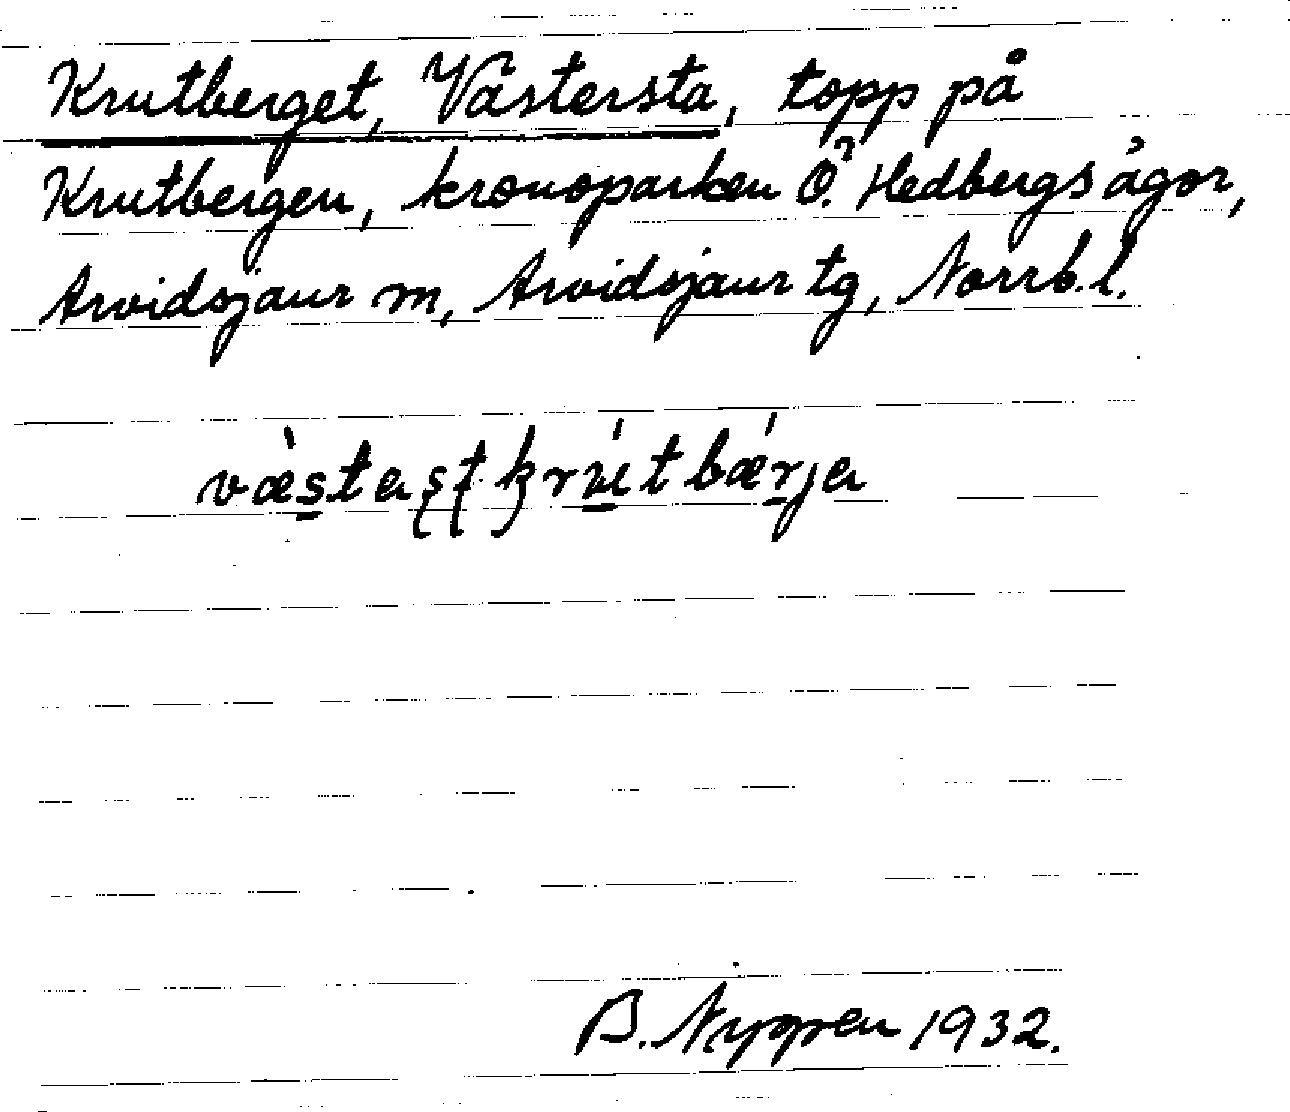 Krutberget, Västersta, topp på
Krutbergen, kronoparken Ö. Hedbergsågor,
Arvidsjaur m, Arvidsjaur tg, Norrb. l.
B. Nygren 1932.